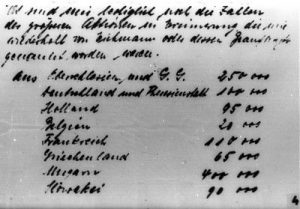 Es sind mir lediglich noch die Zahlen
der grösseren Aktionen in Erinnerung die mir
wiederholt von Eichmann oder dessen
genannt worden waren.
Aus und G.G. 250 000
Deutschland und 100 000
Holland 95 000
Belgien 20 000
Frankreich 110 000
Griechenland 65 000
Ungarn 400 000
Slowakei 90 000